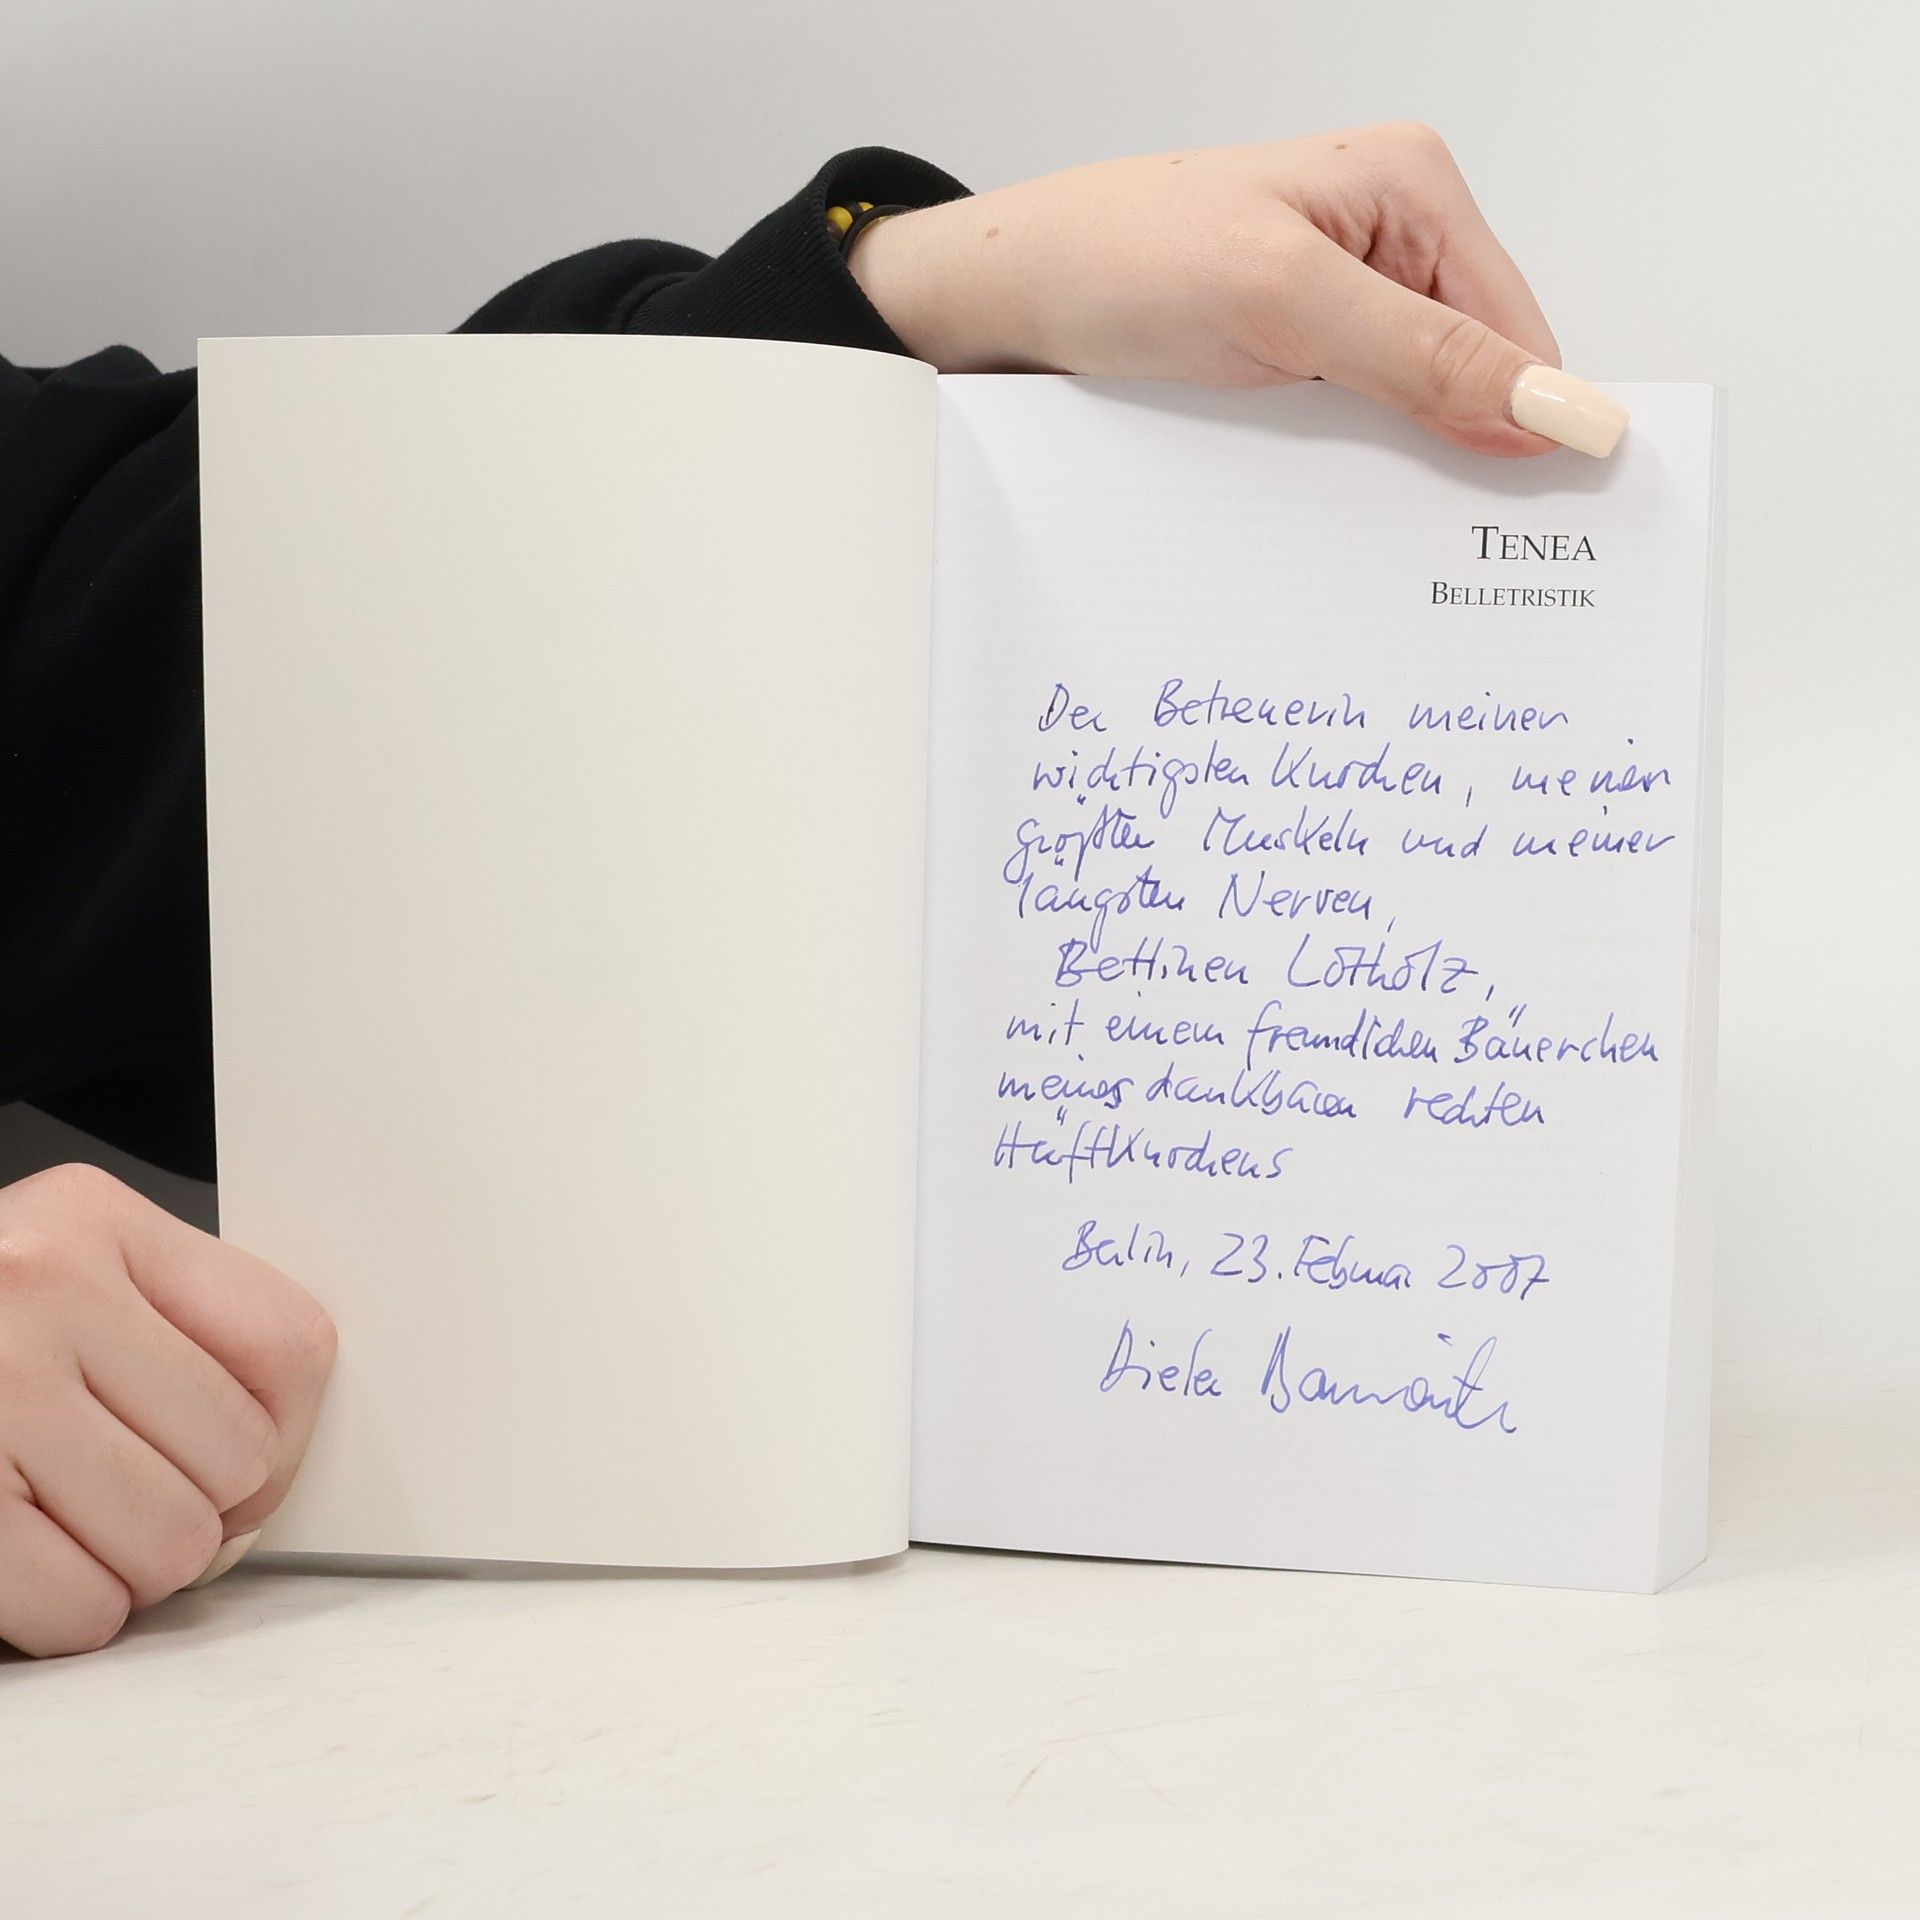 TENEA
BELLETRISTIK
Der Betreuerin meiner
wichtigsten Knochen, meiner
größten Muskeln und meiner
längsten Nerven,
Bettinen Lotholz,
mit einem freundlichen Bäuerchen
meines dankbaren rechten
Hüftknochens
Berlin, 23. Februar 2007
Dieter